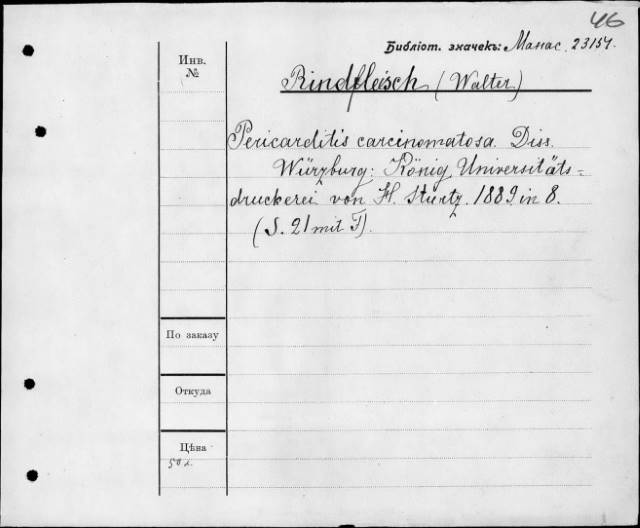 46
Библіот. значекъ: Манас. 23154.
Инв.
№
Rindfleisch (Walter)
Pericarditis carcinomatosa. Diss.
Würzburg: König. Universitäts=
druckerei von H. Sturtz. 1889. in 8.
(S. 21 mit T).
По заказу
Откуда
Цѣна
50